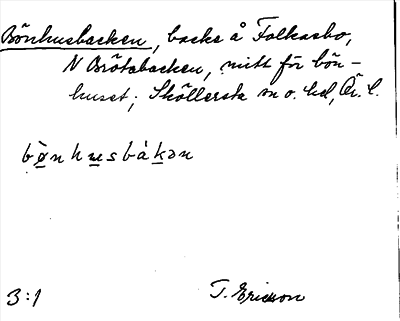 Bönhusbacken, backe å Folkasbo,
N Brötabacken, mitt för bön-
huset; Sköllersta sn o. hd, Ör. l.
bø̀nhusbákən
3:1 T. Ericsson